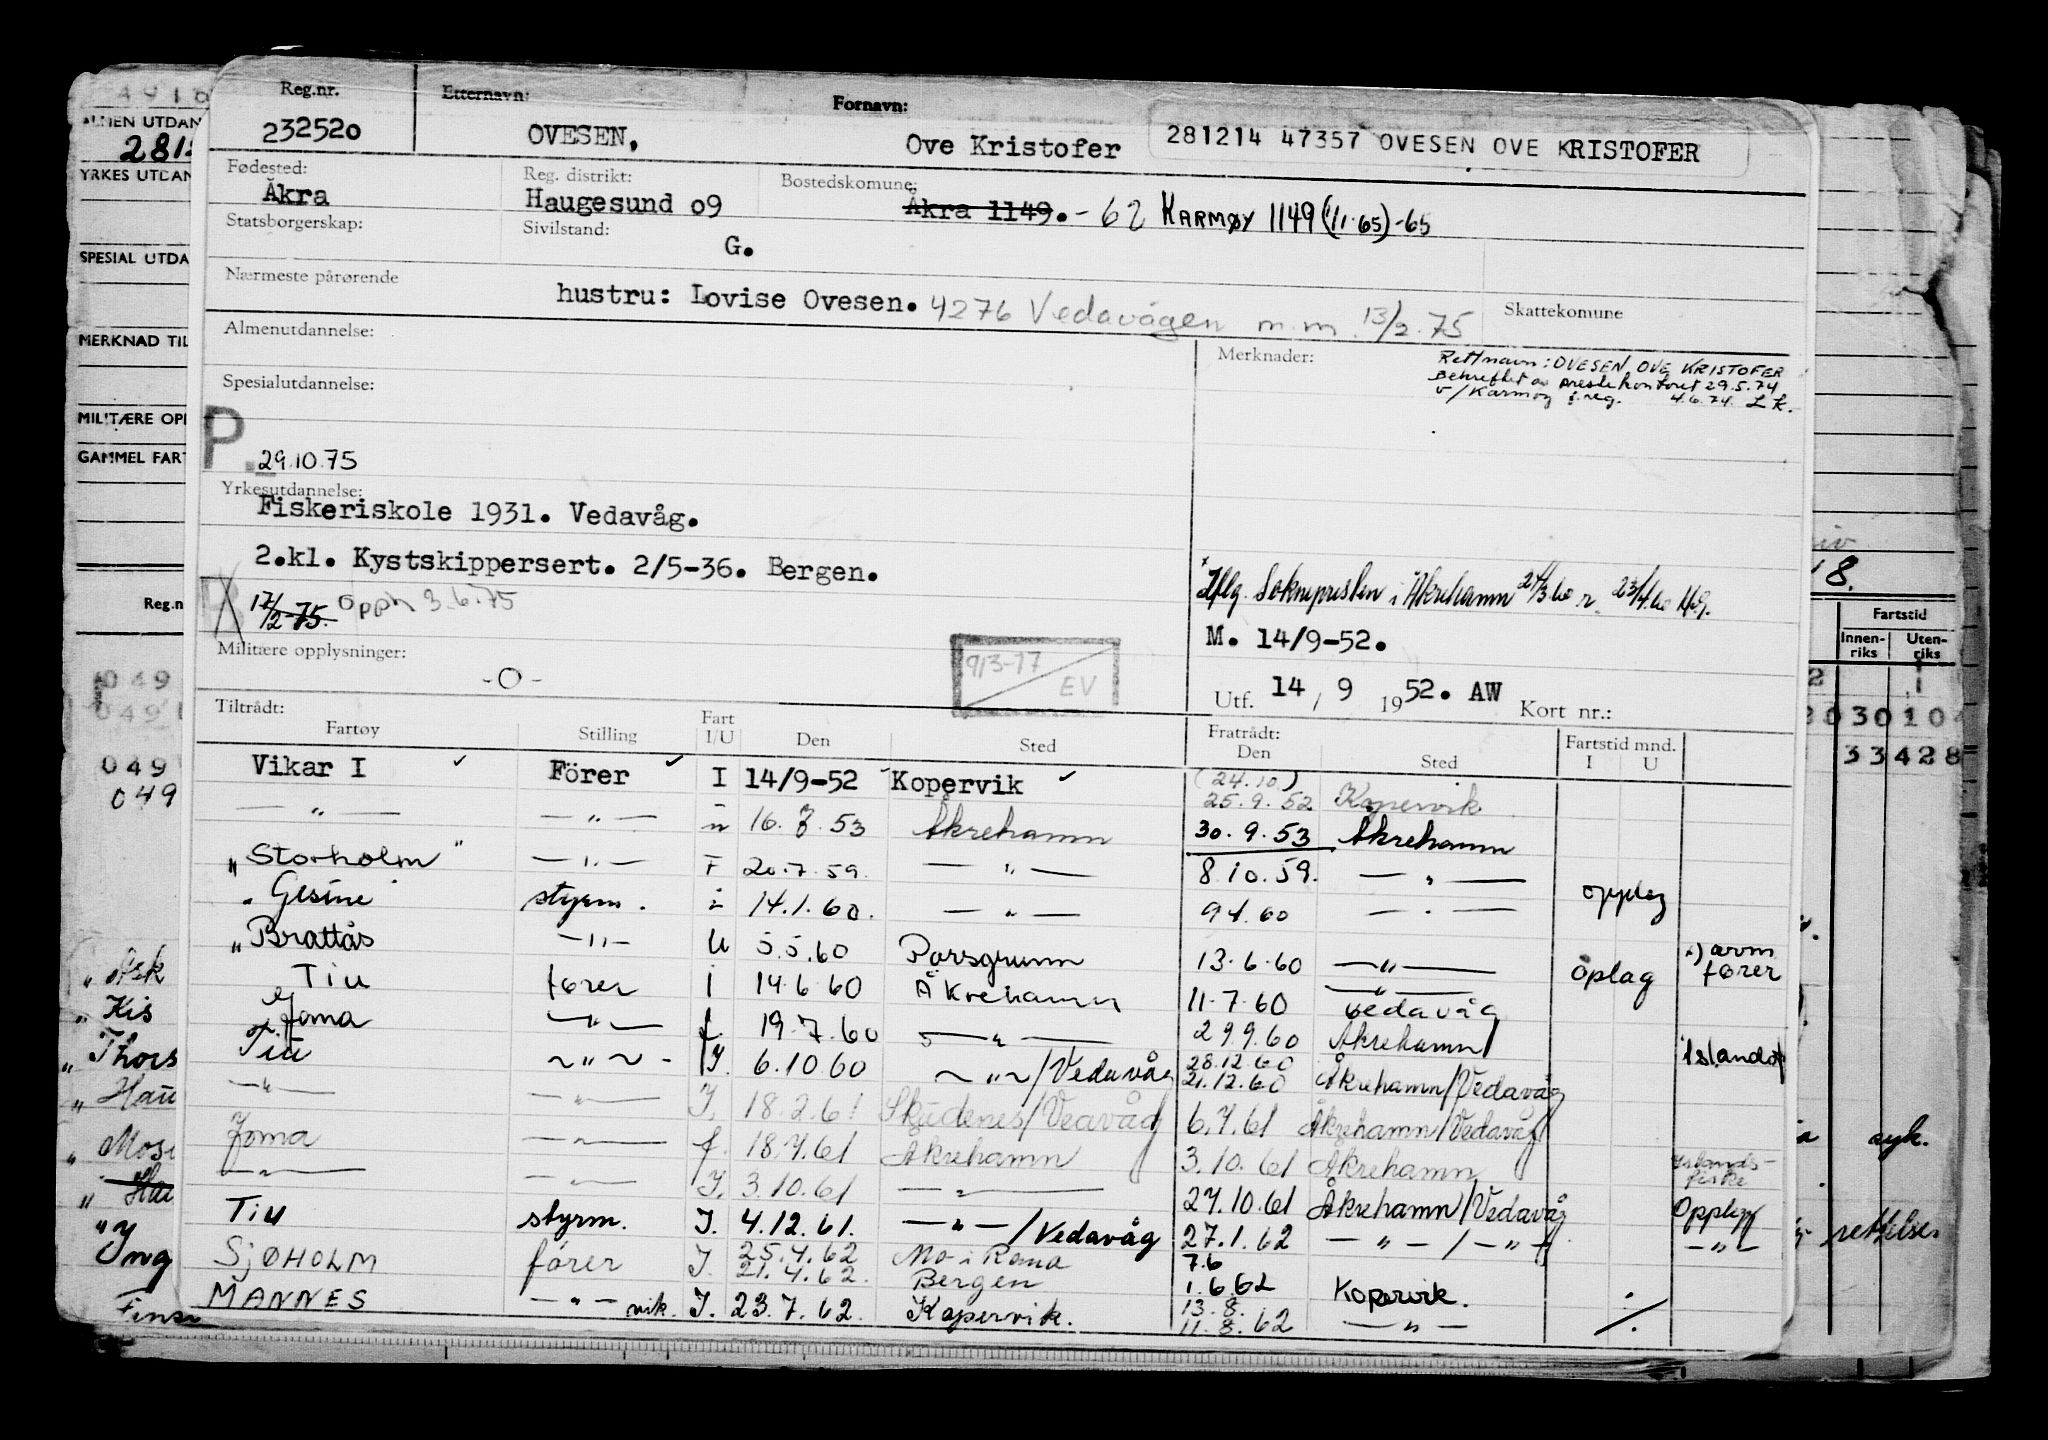 Reg.nr. Etternavn: Fornavn:
232520 OVESEN, Ove Kristofer 281214 47357 OVESEN OVE KRISTOFER
Fødested: Reg. distrikt: Bostedskomune:
Åkra Haugesund o9 Åkra 1149.- 62 KARMØY 1149 (1/1-65)-65
Statsborgerskap: Sivilstand:
G.
Nærmeste pårørende Skattekomune
hustru: Lovise Ovesen. 4276 Vedavågen m.m. 13/2.75
Almenutdannelse: Merknader:
Rett navn: OVESEN, OVE KRISTOFER
Bekreftet av prestekontoret 29.5.74
v/Karmøy s.reg. 4.6.74. LK.
Spesialutdannelse:
P.
29.10.75
Yrkesutdannelse:
Fiskeriskole 1931. Vedavåg.
2.kl. Kystskippersert. 2/5-36. Bergen.
17/2-75. Opph 3.6.75
Iflg. Soknepresten i Åkrehamn 24/3.60 r. 23/4.60
M. 14/9-52.
Militære opplysninger: -0- 9/3-77 EV
Utf. 14 / 9 1952. AW Kort nr.:
Tiltrådt: Fratrådt: Fartstid mnd.
Fartøy Stilling Fart I/U Den Sted Den Sted I U
Vikar I Förer I 14/9-52 Kopervik (24.10) 25.9.52 Kopervik
— " — — " — " 16.7.53 Åkrehamn 30.9.53 Åkrehamn
"Storholm" — " — F 20.7.59. — " — 8.10.59. — " — opplag
"Gesine" styrm. i 14.1.60. — " — 9 4.60 — " —
"Brattås — " — U 5.5.60 Porsgrunn 13.6.60 — " — oplag arvm fører
Tiu fører i 14.6.60 Åkrehamn 11.7.60 Vedavåg
Joma — " — f. 19.7.60 — " — 29.9.60 Åkrehamn Islandsf
Tiu — " — I. 6.10 60 — " — /Vedavåg 28.12.60 21.12.60 Åkrehamn/Vedavåg
— " — — " — I. 18.2.61 Skudenes/Veavåg 6.7.61 Åkrehamn/Vedavåg
Joma — " — f. 18.7.61 Åkrehamn 3.10.61 Åkrehamn Islands-fiske
— " — — " — I. 3.10.61 — " — 27.10.61 Åkrehamn/Vedavåg Opplag
Tiu styrm. I. 4.12.61. — " — /Vedavåg 27.1.62 — " — / — " — — " —
SJØHOLM fører I. 25.4.62 21.4.62. Mo i Rana Bergen 7.6 1.6.62 Kopervik.
MANNES — " — vik. I. 23.7.62. Kopervik. 13.8. 11.8.62 — " — ./.
ALMEN UTDAN
YRKES UTDAN
SPESIAL UTDA
MERKNAD TIL
MILITÆRE OPP
GAMMEL FART
Reg.n
049
049
049
049
" Ask
" Kis
" Thors
" Hau
" Mose
" Hau
Ing
Finse
8.
Fartstid
Innen-riks Uten-riks
30 10
33428
syk.
rettelse.